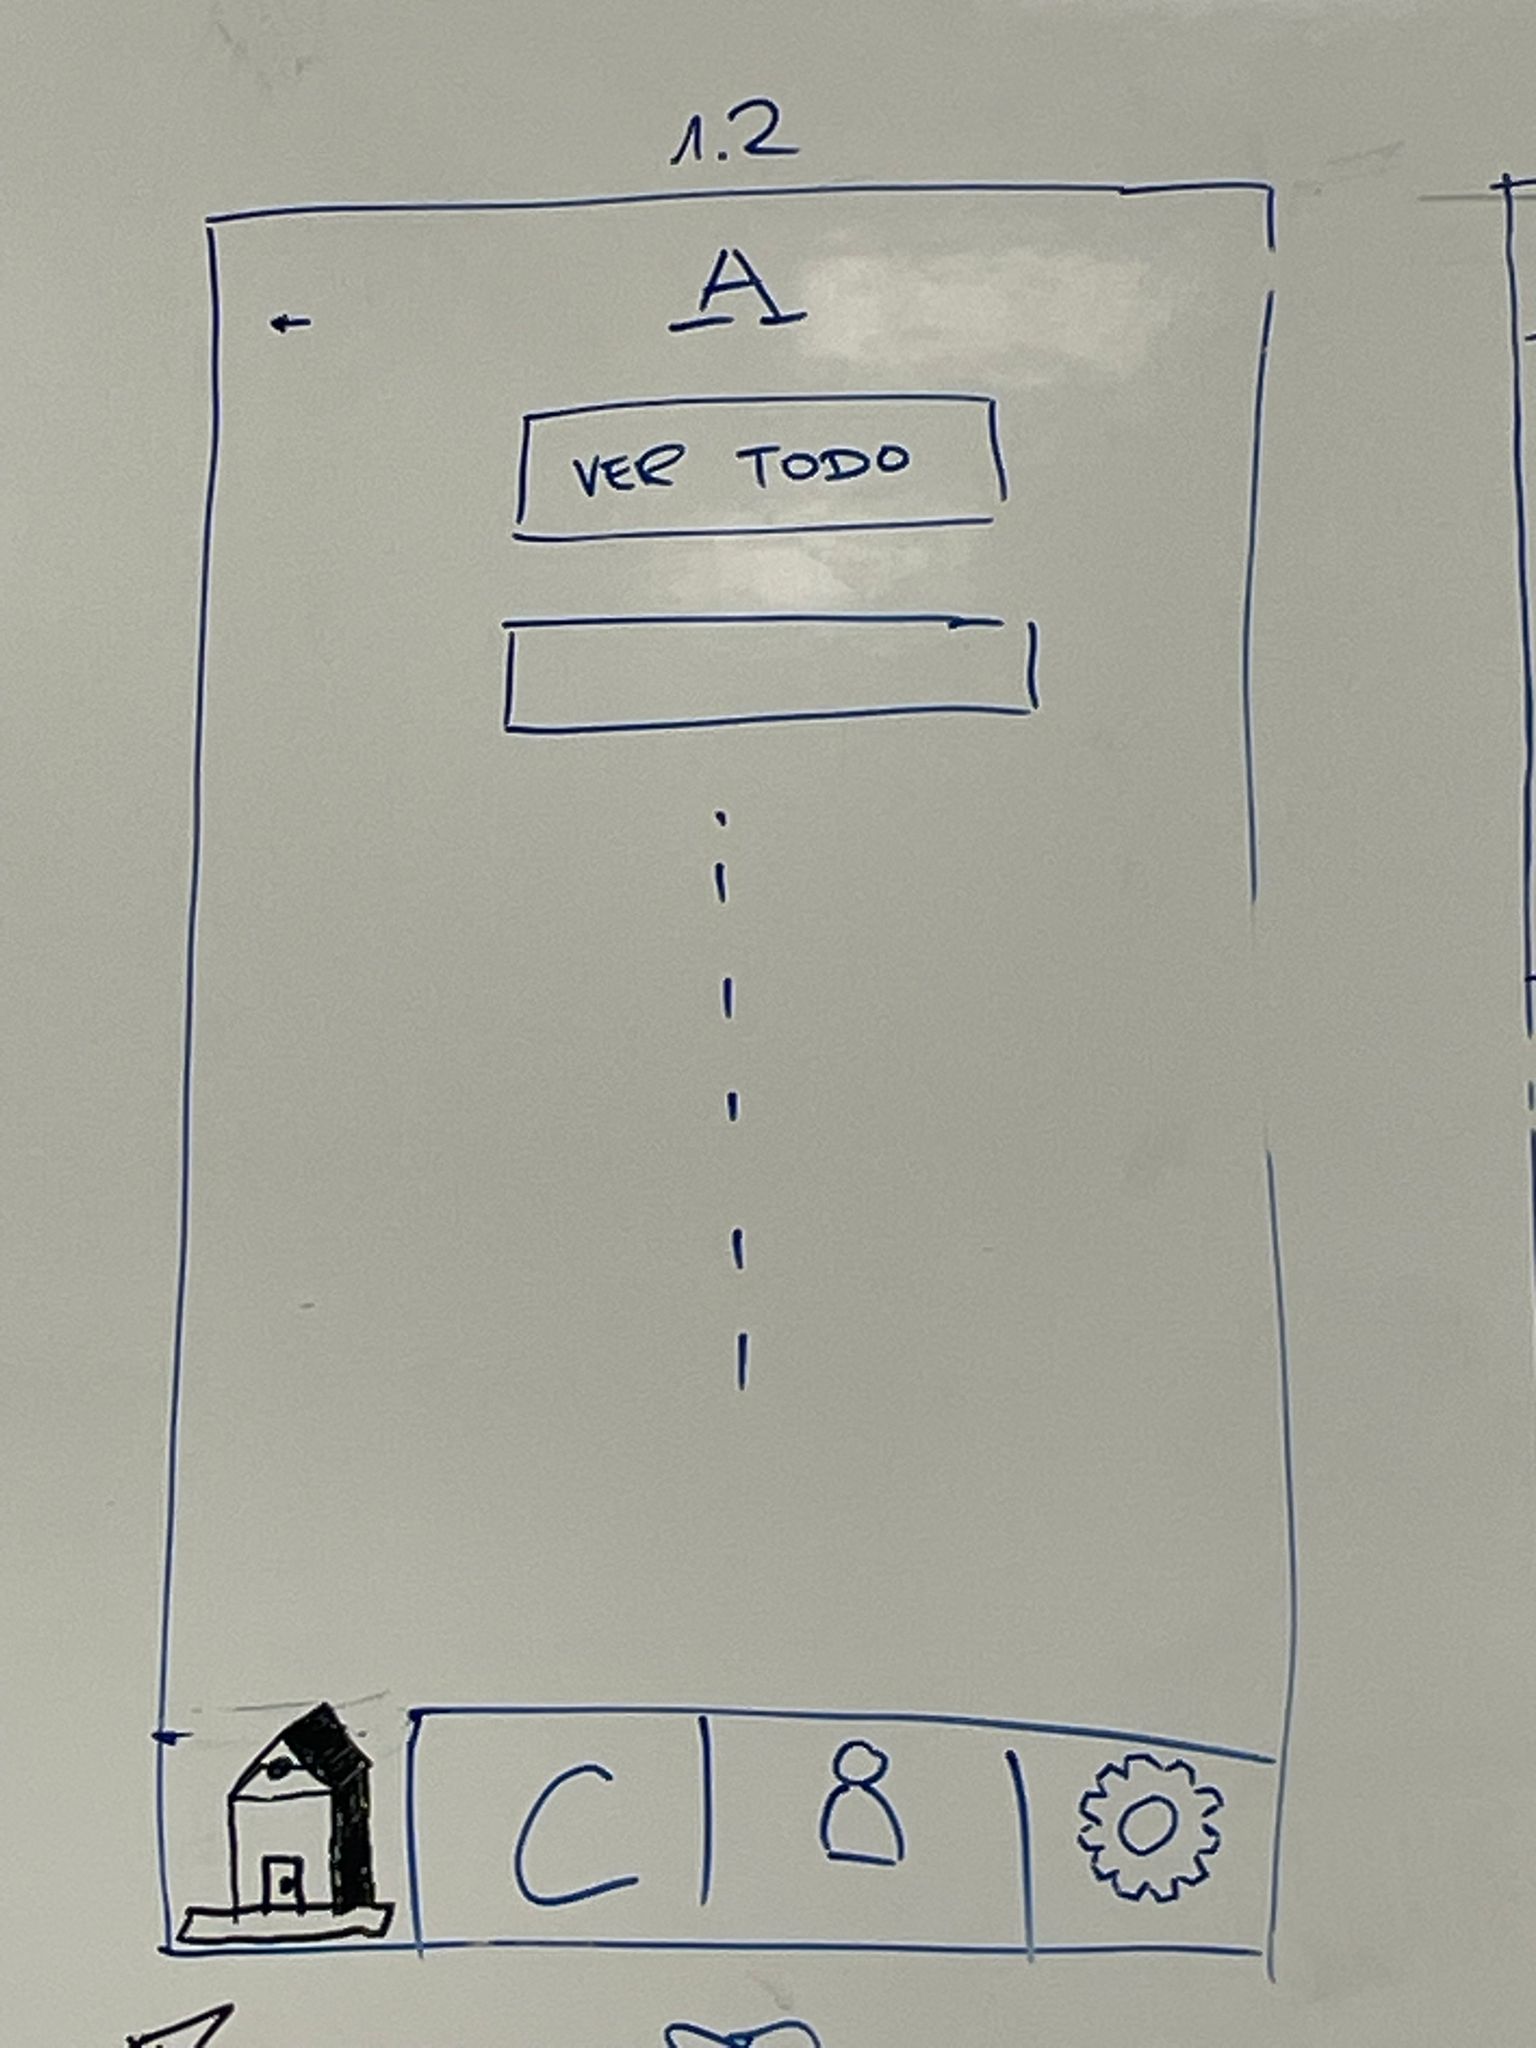 1.2
A
VER TODO
C